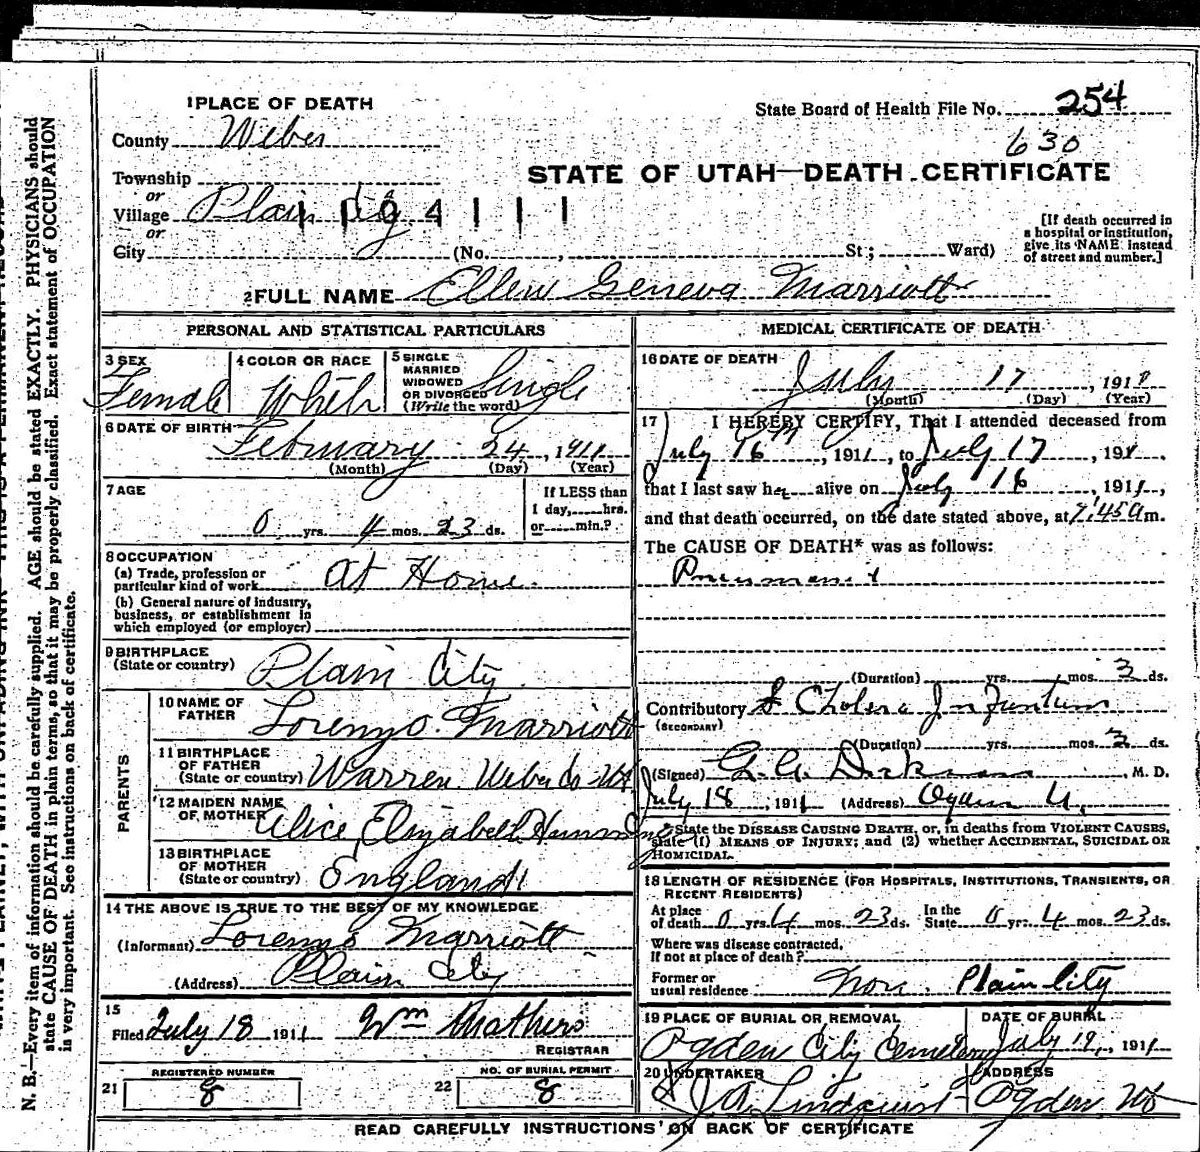 1 PLACE OF DEATH
State Board of Health File No. 254
County Weber
630
STATE OF UTAH—DEATH CERTIFICATE
Township
or
Village Plain City
1104111
or
City (No. , St; Ward)
[If death occurred in
a hospital or institution,
give its NAME instead
of street and number.]
2 FULL NAME Ellen Geneva Marriott
PERSONAL AND STATISTICAL PARTICULARS
3 SEX
Female
4 COLOR OR RACE
White
5 SINGLE
MARRIED
WIDOWED
OR DIVORCED
(Write the word)
Single
6 DATE OF BIRTH
February 24, 1911
(Month) (Day) (Year)
7 AGE
0 yrs. 4 mos. 23 ds.
If LESS than
1 day, hrs.
or min.?
8 OCCUPATION
(a) Trade, profession or
particular kind of work At Home.
(b) General nature of industry,
business, or establishment in
which employed (or employer)
9 BIRTHPLACE
(State or country) Plain City
PARENTS
10 NAME OF
FATHER Lorenzo Marriott
11 BIRTHPLACE
OF FATHER
(State or country) Warren Weber Co Ut
12 MAIDEN NAME
OF MOTHER Alice Elizabeth
13 BIRTHPLACE
OF MOTHER
(State or country) England
14 THE ABOVE IS TRUE TO THE BEST OF MY KNOWLEDGE
(Informant) Lorenzo Marriott
(Address) Plain City
15
Filed July 18 1911 Wm Mathers
REGISTRAR
REGISTERED NUMBER
21 8
NO. OF BURIAL PERMIT
22 8
MEDICAL CERTIFICATE OF DEATH
16 DATE OF DEATH
July 17, 1911
(Month) (Day) (Year)
17 I HEREBY CERTIFY, That I attended deceased from
July 16th, 1911, to July 17, 191
that I last saw her alive on July 16, 1911,
and that death occurred, on the date stated above, at 7:45 a m.
The CAUSE OF DEATH* was as follows:
Pneumonia
(Duration) yrs. mos. 3 ds.
Contributory Cholera Infantum
(SECONDARY)
(Duration) yrs. mos. 3 ds.
(Signed) , M. D.
July 18, 1911 (Address) Ogden U.
*State the DISEASE CAUSING DEATH, or, in deaths from VIOLENT CAUSES,
state (1) MEANS OF INJURY; and (2) whether ACCIDENTAL, SUICIDAL OR
HOMICIDAL.
18 LENGTH OF RESIDENCE (FOR HOSPITALS, INSTITUTIONS, TRANSIENTS, OR
RECENT RESIDENTS)
At place
of death 0 yrs. 4 mos. 23 ds. In the
State 0 yrs. 4 mos. 23 ds.
Where was disease contracted,
if not at place of death?
Former or
usual residence Plain City
19 PLACE OF BURIAL OR REMOVAL
Ogden City Cemetery
DATE OF BURIAL
July 19, 1911
20 UNDERTAKER
Lindquist
ADDRESS
Ogden Ut
READ CAREFULLY INSTRUCTIONS ON BACK OF CERTIFICATE
N. B.—Every item of information should be carefully supplied. AGE should be stated EXACTLY. PHYSICIANS should
state CAUSE OF DEATH in plain terms, so that it may be properly classified. Exact statement of OCCUPATION
is very important. See instructions on back of certificate.